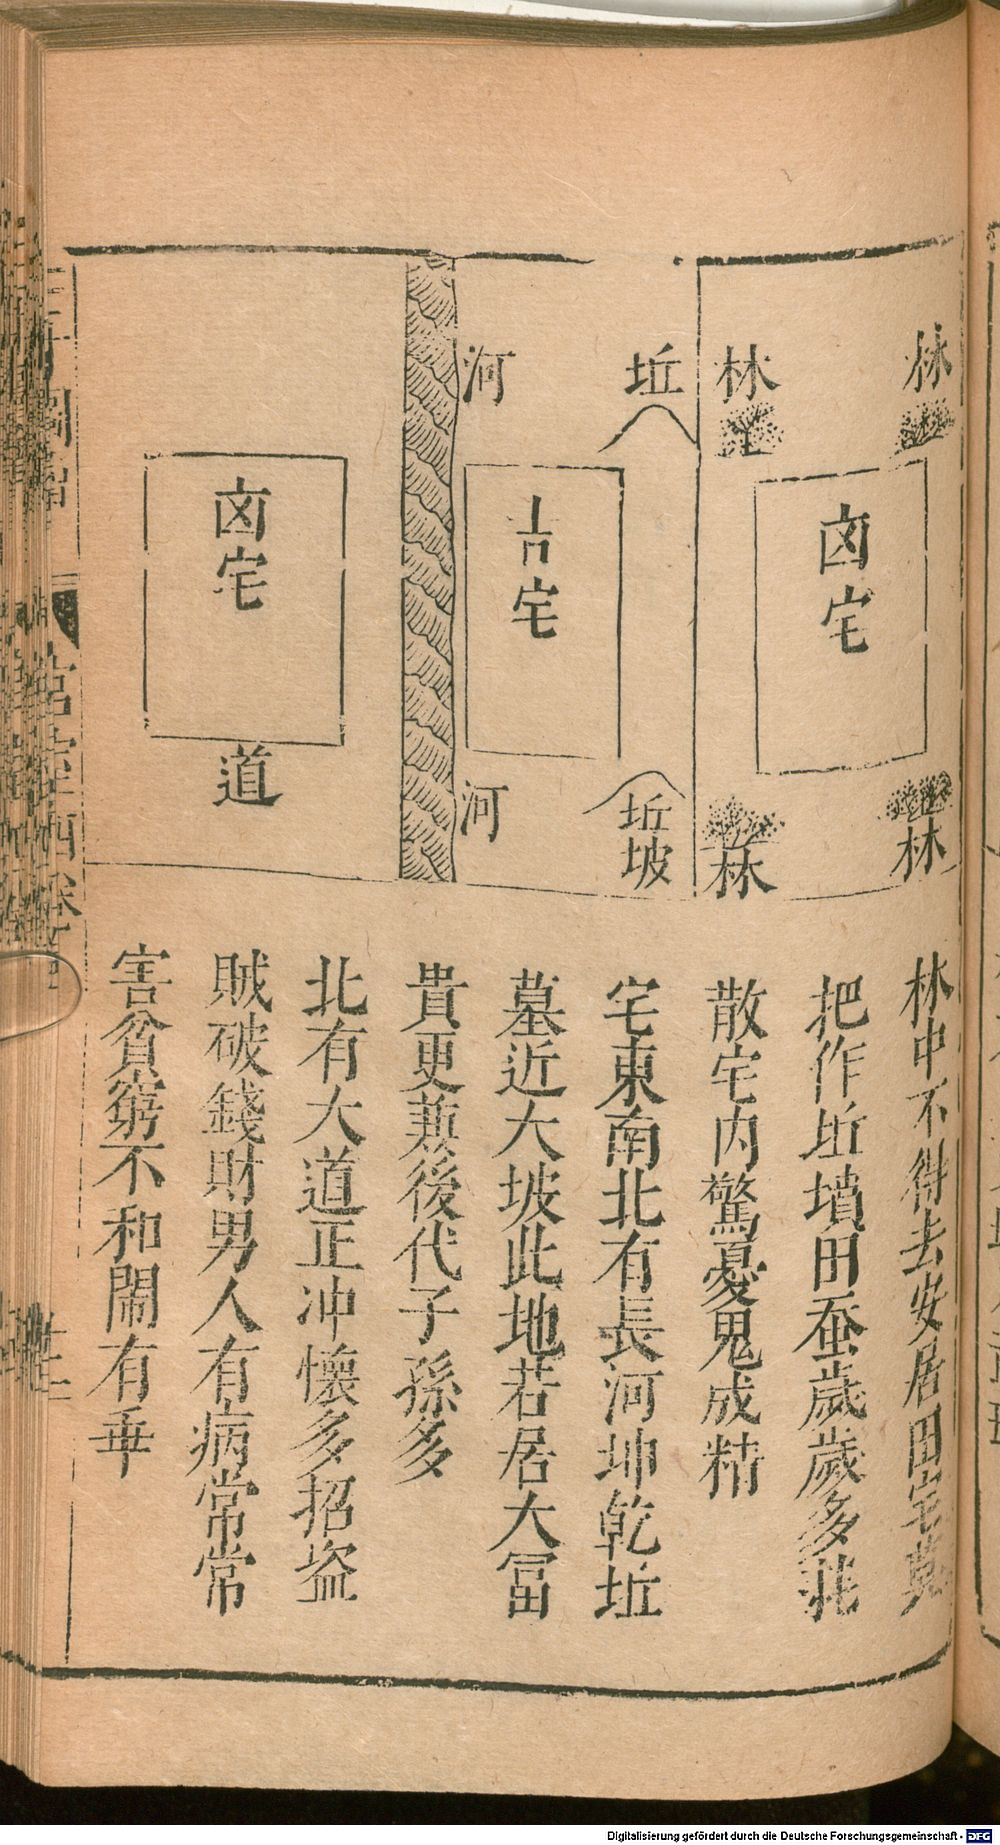 林
林
凶宅
林
林
坵
河
吉宅
坵坡
河
凶宅
道
林中不得去安居田宅
把作坵墳田蚕歲歲多
散宅内驚憂鬼成精
宅東南北有長河坤乾坵
墓近大坡此地若居大冨
貴更兼後代子孫多
北有大道正冲懷多招盜
賊破錢財男人有病常常
害貧窮不和鬧有乖
宮室四卷
Digitalisierung gefördert durch die Deutsche Forschungsgemeinschaft - DFG